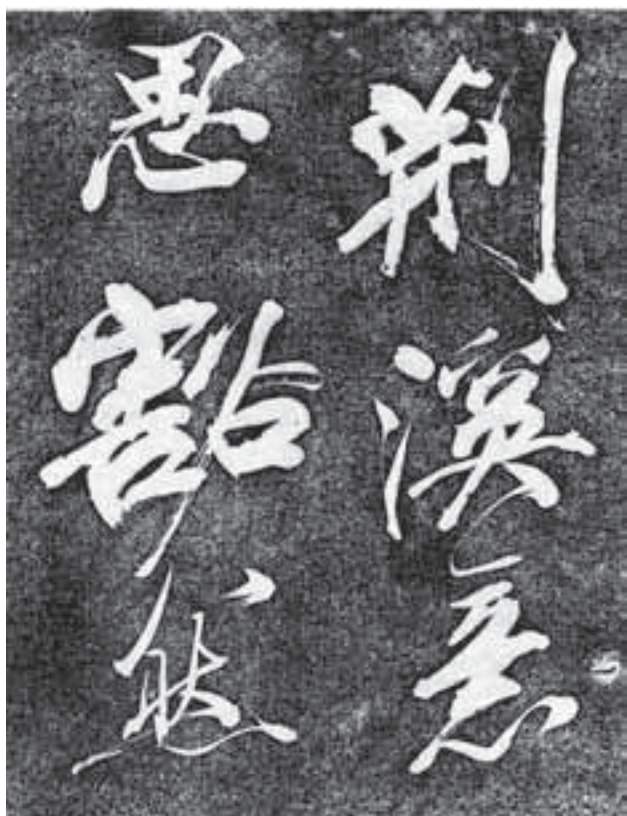 荆溪意
思豁然